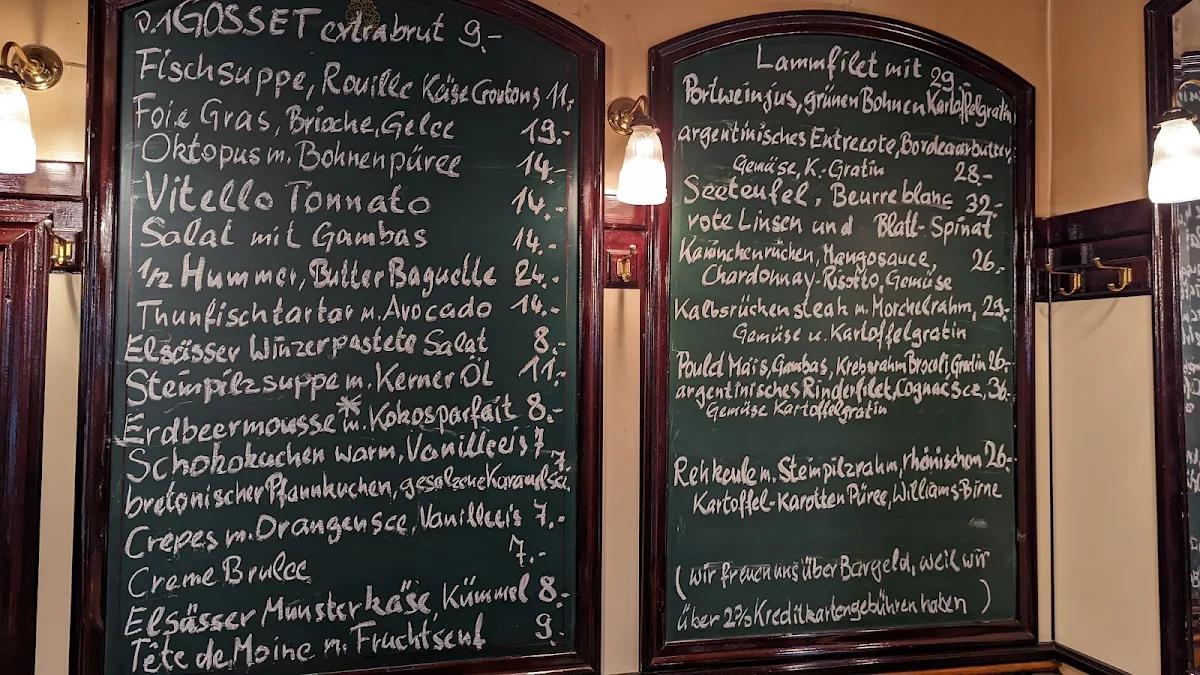 0.1 GOSSET extrabrut 9.-
Fischsuppe, Rouille Käse Croutons 11.-
Foie Gras, Brioche, Gelee 19.-
Oktopus m. Bohnenpüree 14.-
Vitello Tonnato 14.-
Salat mit Gambas 14.-
1/2 Hummer, Butter Baguette 24.-
Thunfischtartar m. Avocado 14.-
Elsässer Winzerpastete Salat 8.-
Steinpilzsuppe m. Kerner Öl 11.-
Erdbeermousse m. Kokosparfait 8.-
Schokokuchen warm, Vanilleeis 7.-
bretonischer Pfannkuchen, gesalzene Karamelsce. 7.
Crepes m. Orangensce, Vanilleeis 7.-
Creme Brulee 7.-
Elsässer Munsterkäse, Kümmel 8.-
Tête de Moine m. Fruchtsenf 9.-
Lammfilet mit 29.-
Portweinjus, grünen Bohnen Kartoffelgratin
argentinisches Entrecote, Bordeauxbutter,
Gemüse, K.-Gratin 28.-
Seeteufel, Beurre blanc 32.-
rote Linsen und Blatt-Spinat
Kaninchenrücken, Mangosauce, 26.-
Chardonnay-Risotto, Gemüse
Kalbsrückensteak m. Morchelrahm, 29.-
Gemüse u. Kartoffelgratin
Pould Mais, Gambas, Krebsrahm Brocoli, Gratin 26.-
argentinisches Rinderfilet, Cognacsce, 36.-
Gemüse Kartoffelgratin
Rehkeule m. Steinpilzrahm, rhönischem 26.-
Kartoffel-Karotten Püree, Williams-Birne
(wir freuen uns über Bargeld, weil wir
über 2% Kreditkartengebühren haben)